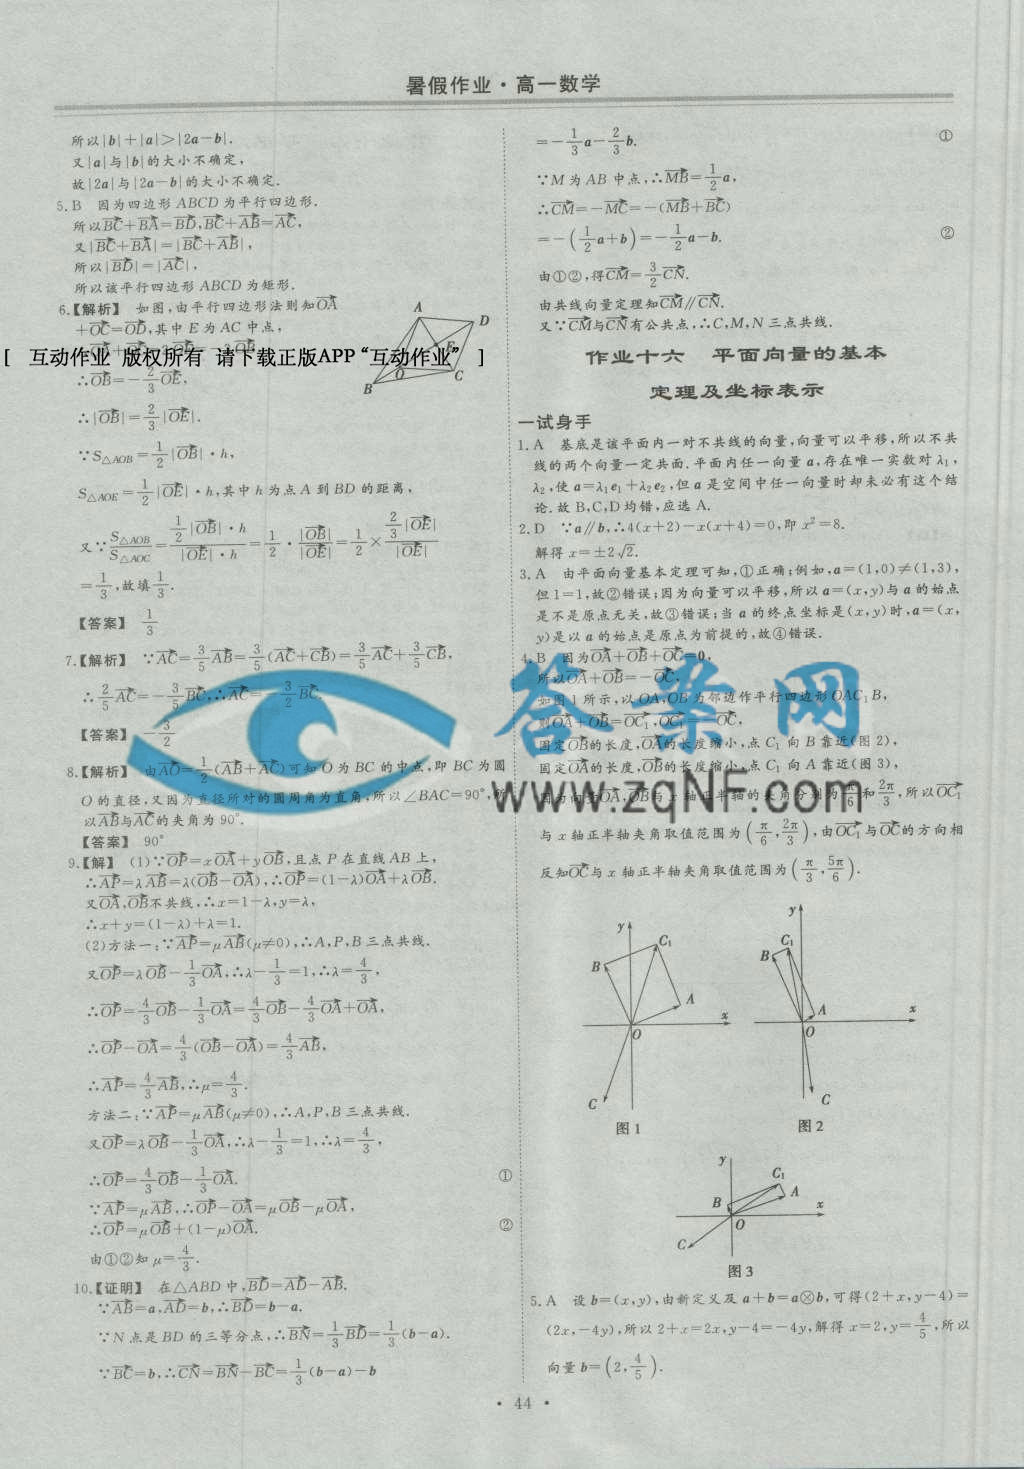 暑假作业·高一数学
所以|b|+|a|>|2a-b|.
又|a|与|b|的大小不确定,
故|2a|与|2a-b|的大小不确定.
5.B 因为四边形ABCD为平行四边形.
所以BC+BA=BD,BC+AB=AC,
又|BC+BA|=|BC+AB|,
所以|BD|=|AC|,
所以该平行四边形ABCD为矩形.
6.【解析】 如图,由平行四边形法则知OA
+OC=OD,其中E为AC中点,
[ 互动作业 版权所有 请下载正版APP“互动作业” ]
∴OB=-2/3 OE,
∴|OB|=2/3|OE|.
∵S△AOB=1/2|OB|·h,
S△AOE=1/2|OE|·h,其中h为点A到BD的距离,
又∵S△AOB/S△AOC=(1/2|OB|·h)/(|OE|·h)=1/2·|OB|/|OE|=1/2×(2/3|OE|)/|OE|
=1/3,故填1/3.
【答案】 1/3
7.【解析】 ∵AC=3/5 AB=3/5(AC+CB)=3/5 AC+3/5 CB,
∴2/5 AC=-3/5 BC,∴AC=-3/2 BC.
【答案】 -3/2
8.【解析】 由AO=1/2(AB+AC)可知O为BC的中点,即BC为圆
O的直径,又因为直径所对的圆周角为直角,所以∠BAC=90°,所
以AB与AC的夹角为90°.
【答案】 90°
9.【解】 (1)∵OP=xOA+yOB,且点P在直线AB上,
∴AP=λAB=λ(OB-OA),∴OP=(1-λ)OA+λOB.
又OA,OB不共线,∴x=1-λ,y=λ,
∴x+y=(1-λ)+λ=1.
(2)方法一:∵AP=μAB(μ≠0),∴A,P,B三点共线.
又OP=λOB-1/3 OA,∴λ-1/3=1,∴λ=4/3,
∴OP=4/3 OB-1/3 OA=4/3 OB-4/3 OA+OA,
∴OP-OA=4/3(OB-OA)=4/3 AB,
∴AP=4/3 AB,∴μ=4/3.
方法二:∵AP=μAB(μ≠0),∴A,P,B三点共线.
又OP=λOB-1/3 OA,∴λ-1/3=1,∴λ=4/3,
∴OP=4/3 OB-1/3 OA. ①
∵AP=μAB,∴OP-OA=μOB-μOA,
∴OP=μOB+(1-μ)OA. ②
由①②知μ=4/3.
10.【证明】 在△ABD中,BD=AD-AB.
∵AB=a,AD=b,∴BD=b-a.
∵N点是BD的三等分点,∴BN=1/3 BD=1/3(b-a).
∵BC=b,∴CN=BN-BC=1/3(b-a)-b
A
D
E
O
C
B
=-1/3 a-2/3 b. ①
∵M为AB中点,∴MB=1/2 a,
∴CM=-MC=-(MB+BC)
=-(1/2 a+b)=-1/2 a-b. ②
由①②,得CM=3/2 CN.
由共线向量定理知CM∥CN.
又∵CM与CN有公共点,∴C,M,N三点共线.
作业十六 平面向量的基本
定理及坐标表示
一试身手
1.A 基底是该平面内一对不共线的向量,向量可以平移,所以不共
线的两个向量一定共面.平面内任一向量a,存在唯一实数对λ1,
λ2,使a=λ1e1+λ2e2,但a是空间中任一向量时却未必有这个结
论.故B,C,D均错,应选A.
2.D ∵a∥b,∴4(x+2)-x(x+4)=0,即x²=8.
解得x=±2√2.
3.A 由平面向量基本定理可知,①正确;例如,a=(1,0)≠(1,3),
但1=1,故②错误;因为向量可以平移,所以a=(x,y)与a的始点
是不是原点无关,故③错误;当a的终点坐标是(x,y)时,a=(x,
y)是以a的始点是原点为前提的,故④错误.
4.B 因为OA+OB+OC=0,
所以OA+OB=-OC,
如图1所示,以OA,OB为邻边作平行四边形OAC1B,
则OA+OB=OC1,OC1=-OC,
固定OB的长度,OA的长度缩小,点C1向B靠近(图2),
固定OA的长度,OB的长度缩小,点C1向A靠近(图3),
OA,OB与x轴正半轴的夹角分别为π/6和2π/3,所以OC1
与x轴正半轴夹角取值范围为(π/6,2π/3),由OC1与OC的方向相
反知OC与x轴正半轴夹角取值范围为(π/3,5π/6).
y
C1
B
A
x
O
C
图1
y
C1
B
A
x
O
C
图2
y
C1
B
A
x
O
C
图3
5.A 设b=(x,y),由新定义及a+b=a⊗b,可得(2+x,y-4)=
(2x,-4y),所以2+x=2x,y-4=-4y,解得x=2,y=4/5,所以
向量b=(2,4/5).
答案网
www.zqNF.com
• 44 •